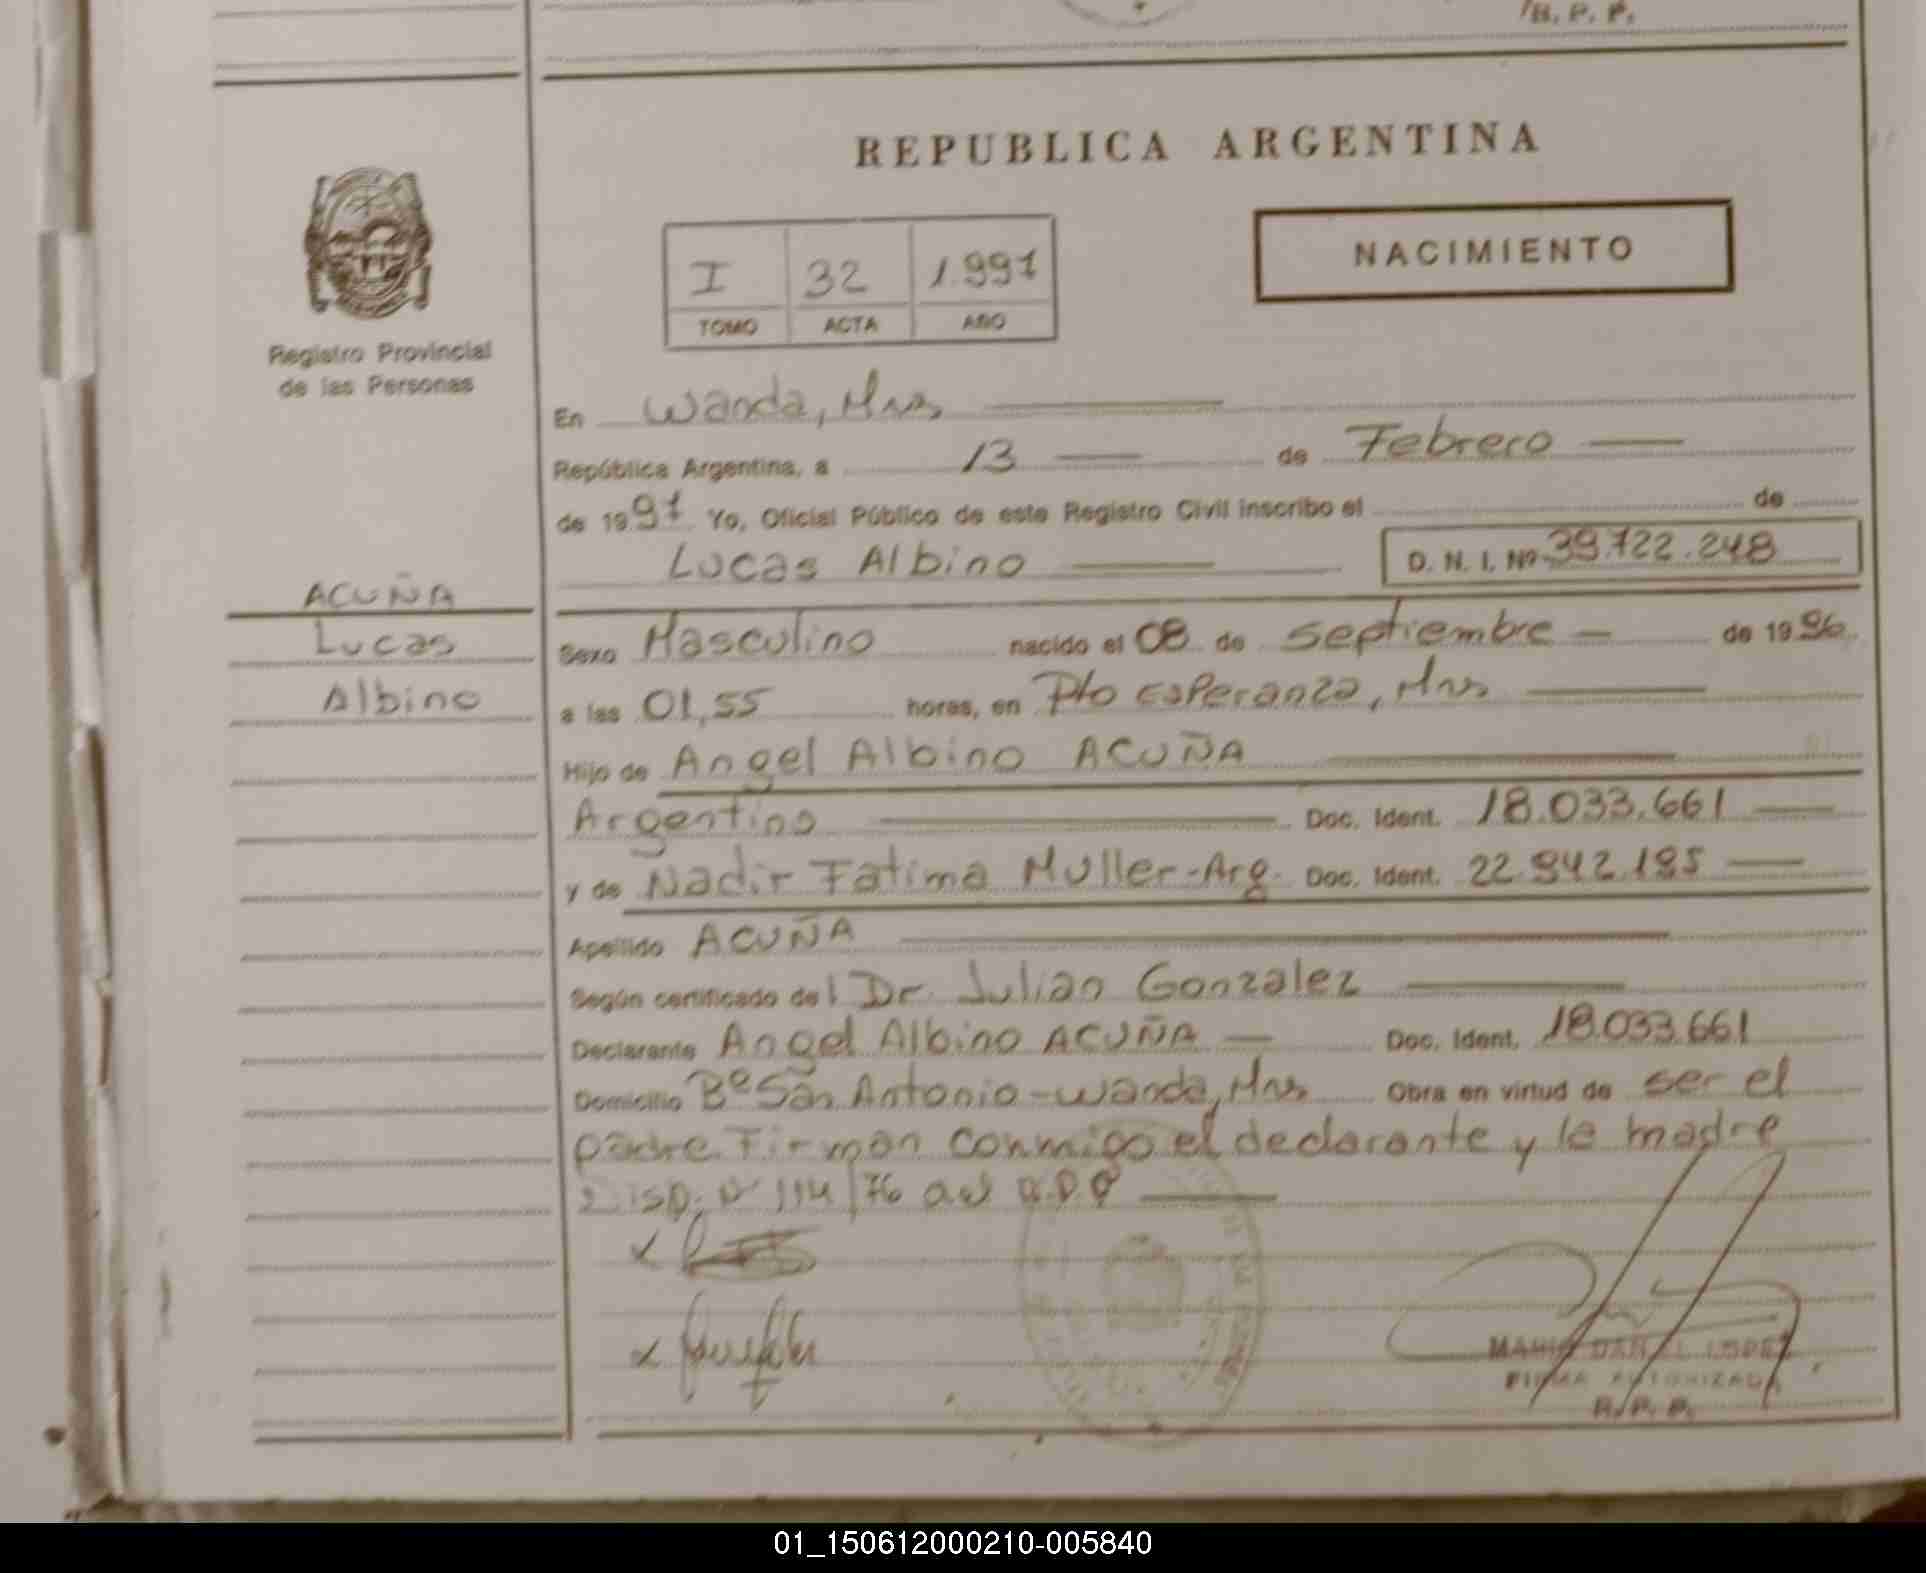 /B. P. P.
REPUBLICA ARGENTINA
NACIMIENTO
I 32 1.997
TOMO ACTA AÑO
Registro Provincial
de las Personas
En Wanda, Mnes
República Argentina, a 13 de Febrero
de 1997 Yo, Oficial Público de este Registro Civil inscribo el de
Lucas Albino D. N. I. Nº 39.722.248
ACUÑA
Lucas
Albino
Sexo Masculino nacido el 08 de Septiembre de 1996
a las 01,55 horas, en Pto Esperanza, Mnes
Hijo de Angel Albino ACUÑA
Argentino Doc. Ident. 18.033.661
y de Nadir Fatima Muller-Arg. Doc. Ident. 22.942.195
Apellido ACUÑA
Según certificado del Dr. Julian Gonzalez
Declarante Angel Albino ACUÑA Doc. Ident. 18.033.661
Domicilio Bº San Antonio-Wanda, Mnes Obra en virtud de ser el
padre. Firman conmigo el declarante y la madre
Disp. Nº 114/76 del
FIRMA AUTORIZADA
R. P. P.
01_150612000210-005840